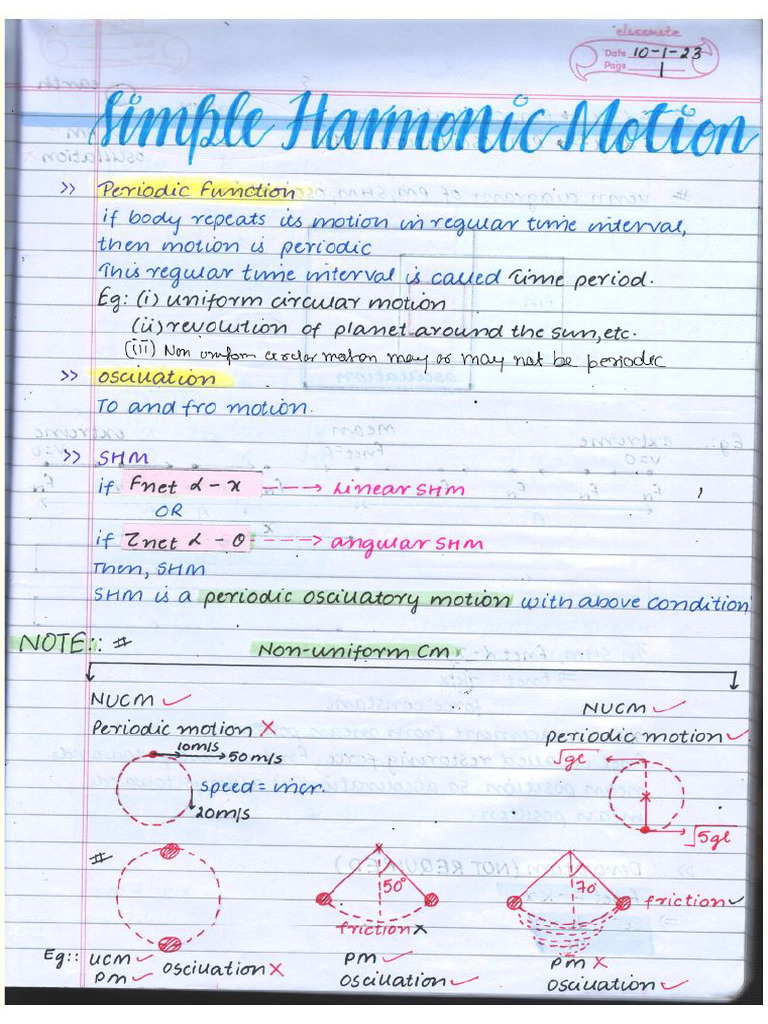 classmate
Date 10-1-23
Page 1
Simple Harmonic Motion
>> Periodic Function
if body repeats its motion in regular time interval,
then motion is periodic
This regular time interval is called Time period.
Eg: (i) uniform circular motion
(ii) revolution of planet around the sun, etc.
(iii) Non uniform circular motion may or may not be periodic
>> oscillation
To and fro motion.
>> SHM
if Fnet α - x ----> Linear SHM
OR
if τnet α - θ ----> angular SHM
Then, SHM
SHM is a periodic oscillatory motion with above condition
NOTE:: # Non-uniform Cm
NUCM ✓ NUCM ✓
Periodic motion ✗ periodic motion ✓
10m/s 50m/s √gl
speed = incr.
20m/s √5gl
#
50° 70°
friction ✗ friction ✓
Eg:: UCM ✓ oscillation ✗ PM ✓ PM ✗
PM ✓ oscillation ✓ oscillation ✓